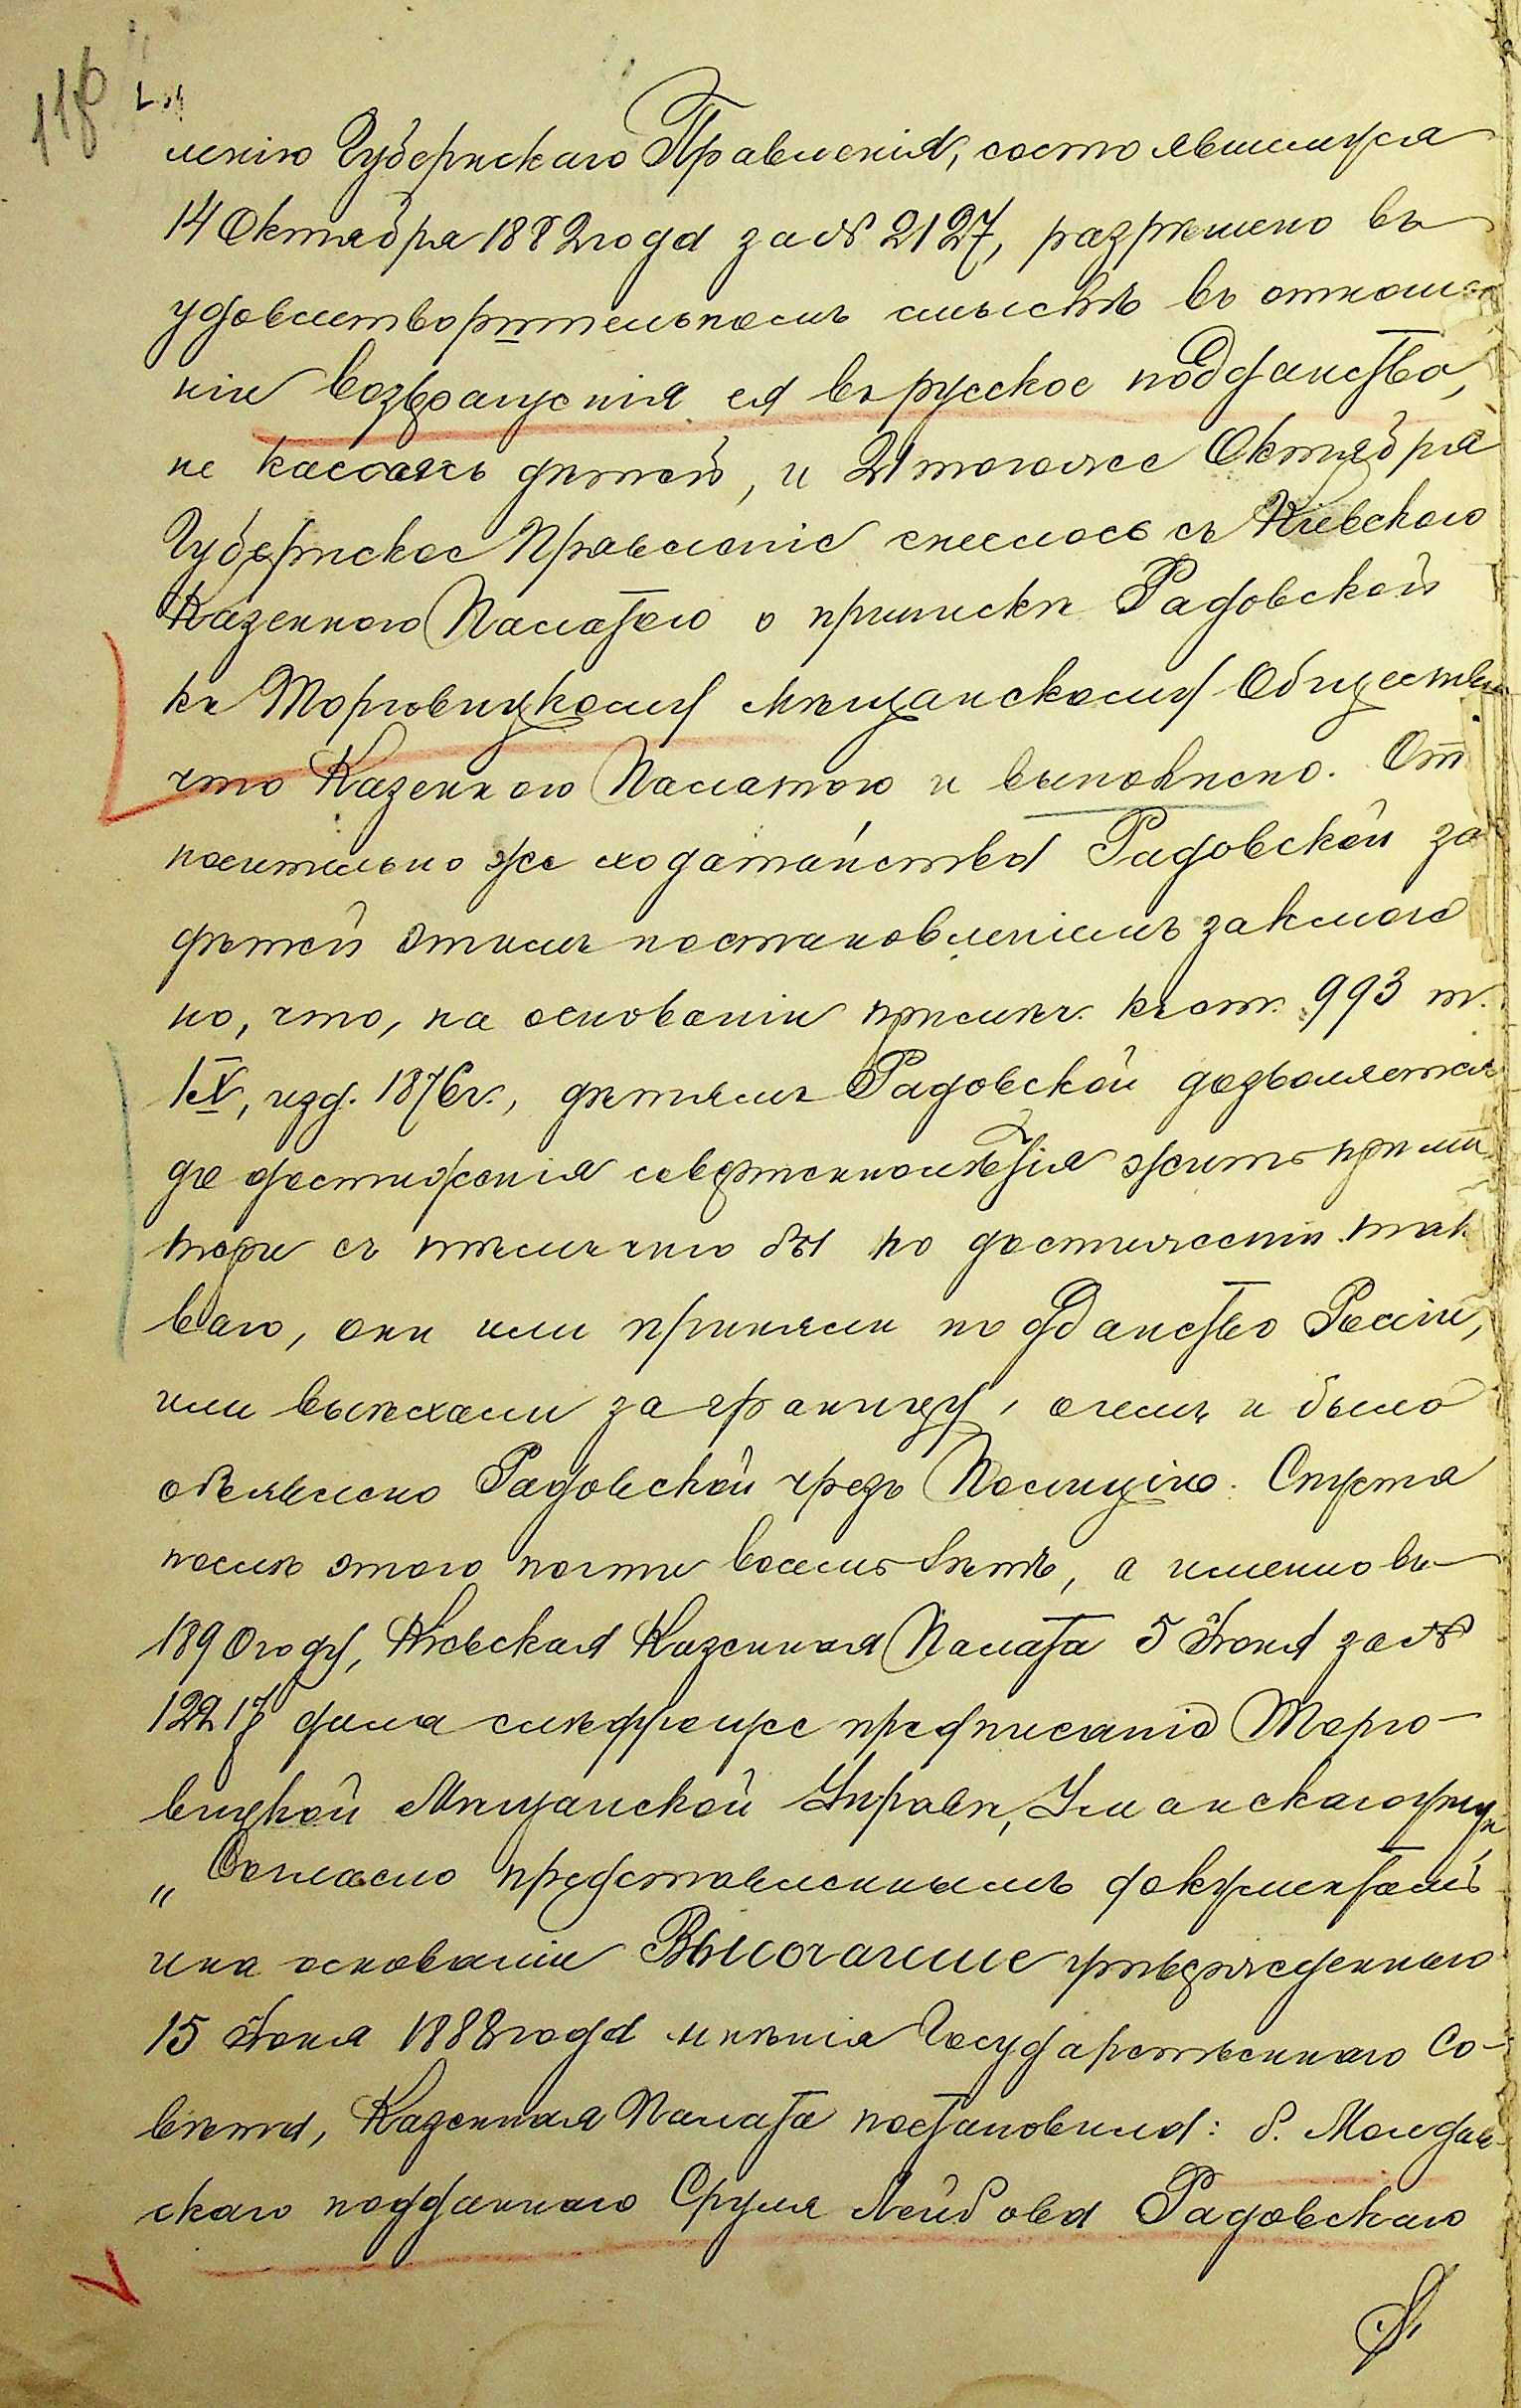 118
ленію Губернскаго Правленія, состоявшимуся
14 Октября 1882 года за № 2127, разрѣшено въ
удовлетворительномъ смыслѣ въ отноше
ніи возвращенія ея въ русское подданство,
не касаясь дѣтей, и 21 тогоже Октября
Губернское Правленіе снеслось съ Кіевскою
Казенною Палатою о припискѣ Радовской
къ Торговицкому Мѣщанскому Обществу
что Казенною Палатою и выполнено. От
носительно же ходатайства Радовской за
дѣтей этимъ постановленіемъ заключе
но, что, на основаніи примѣч. къ ст. 993 т.
IX, изд. 1876 г., дѣтямъ Радовской дозволяется
до достиженія совершеннолѣтія жить при ма
тери съ тѣмъ чтобы по достиженіи тако
ваго, они или приняли подданство Россіи,
или выѣхали за границу, о чемъ и было
объявлено Радовской чрезъ Полицію. Спустя
послѣ этого почти восемь лѣтъ, а именно въ
1890 году, Кіевская Казенная Палата 5 Іюня за №
12217 дала слѣдующее предписаніе Торго-
вицкой Мѣщанской Управѣ, Уманскаго уѣзда
„Согласно представленнымъ документамъ
и на основаніи Высочайше утвержденнаго
15 Іюня 1888 года мнѣнія Государственнаго Со-
вѣта, Казенная Палата постановила: б. Молдав-
скаго подданнаго Сруля Лейбова Радовскаго